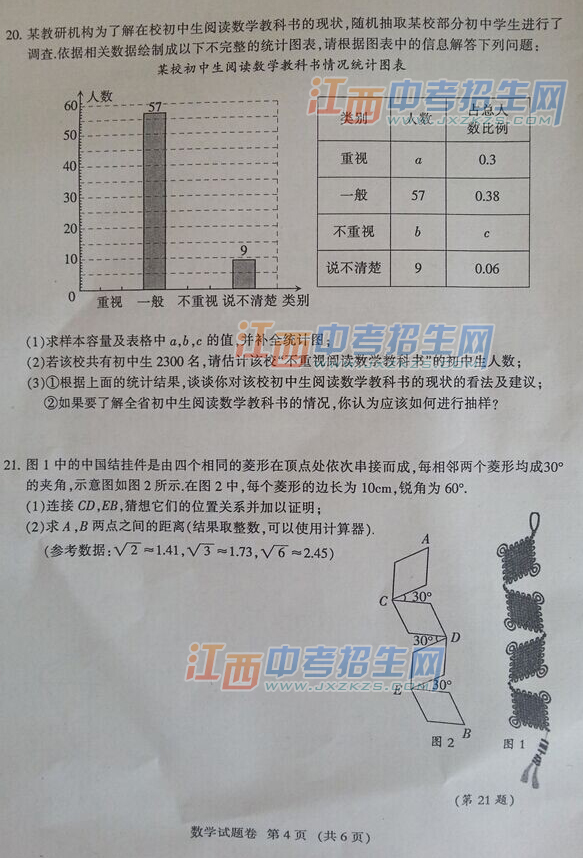 20. 某教研机构为了解在校初中生阅读数学教科书的现状,随机抽取某校部分初中学生进行了
调查.依据相关数据绘制成以下不完整的统计图表,请根据图表中的信息解答下列问题:
某校初中生阅读数学教科书情况统计图表
人数
60
50
40
30
20
10
0
57
9
重视 一般 不重视 说不清楚 类别
类别 人数 占总人数比例
重视 a 0.3
一般 57 0.38
不重视 b c
说不清楚 9 0.06
江西中考招生网
WWW.JXZKZS.COM
(1)求样本容量及表格中 a,b,c 的值,并补全统计图;
(2)若该校共有初中生2300名,请估计该校“不重视阅读数学教科书”的初中生人数;
(3)①根据上面的统计结果,谈谈你对该校初中生阅读数学教科书的现状的看法及建议;
②如果要了解全省初中生阅读数学教科书的情况,你认为应该如何进行抽样?
江西中考招生网
WWW.JXZKZS.COM
21. 图1中的中国结挂件是由四个相同的菱形在顶点处依次串接而成,每相邻两个菱形均成30°
的夹角,示意图如图2所示.在图2中,每个菱形的边长为10cm,锐角为60°.
(1)连接 CD,EB,猜想它们的位置关系并加以证明;
(2)求 A,B 两点之间的距离(结果取整数,可以使用计算器).
(参考数据:√2≈1.41,√3≈1.73,√6≈2.45)
A
C 30°
30° D
E 30°
B
图2 图1
江西中考招生网
WWW.JXZKZS.COM
(第21题)
数学试题卷 第4页 (共6页)